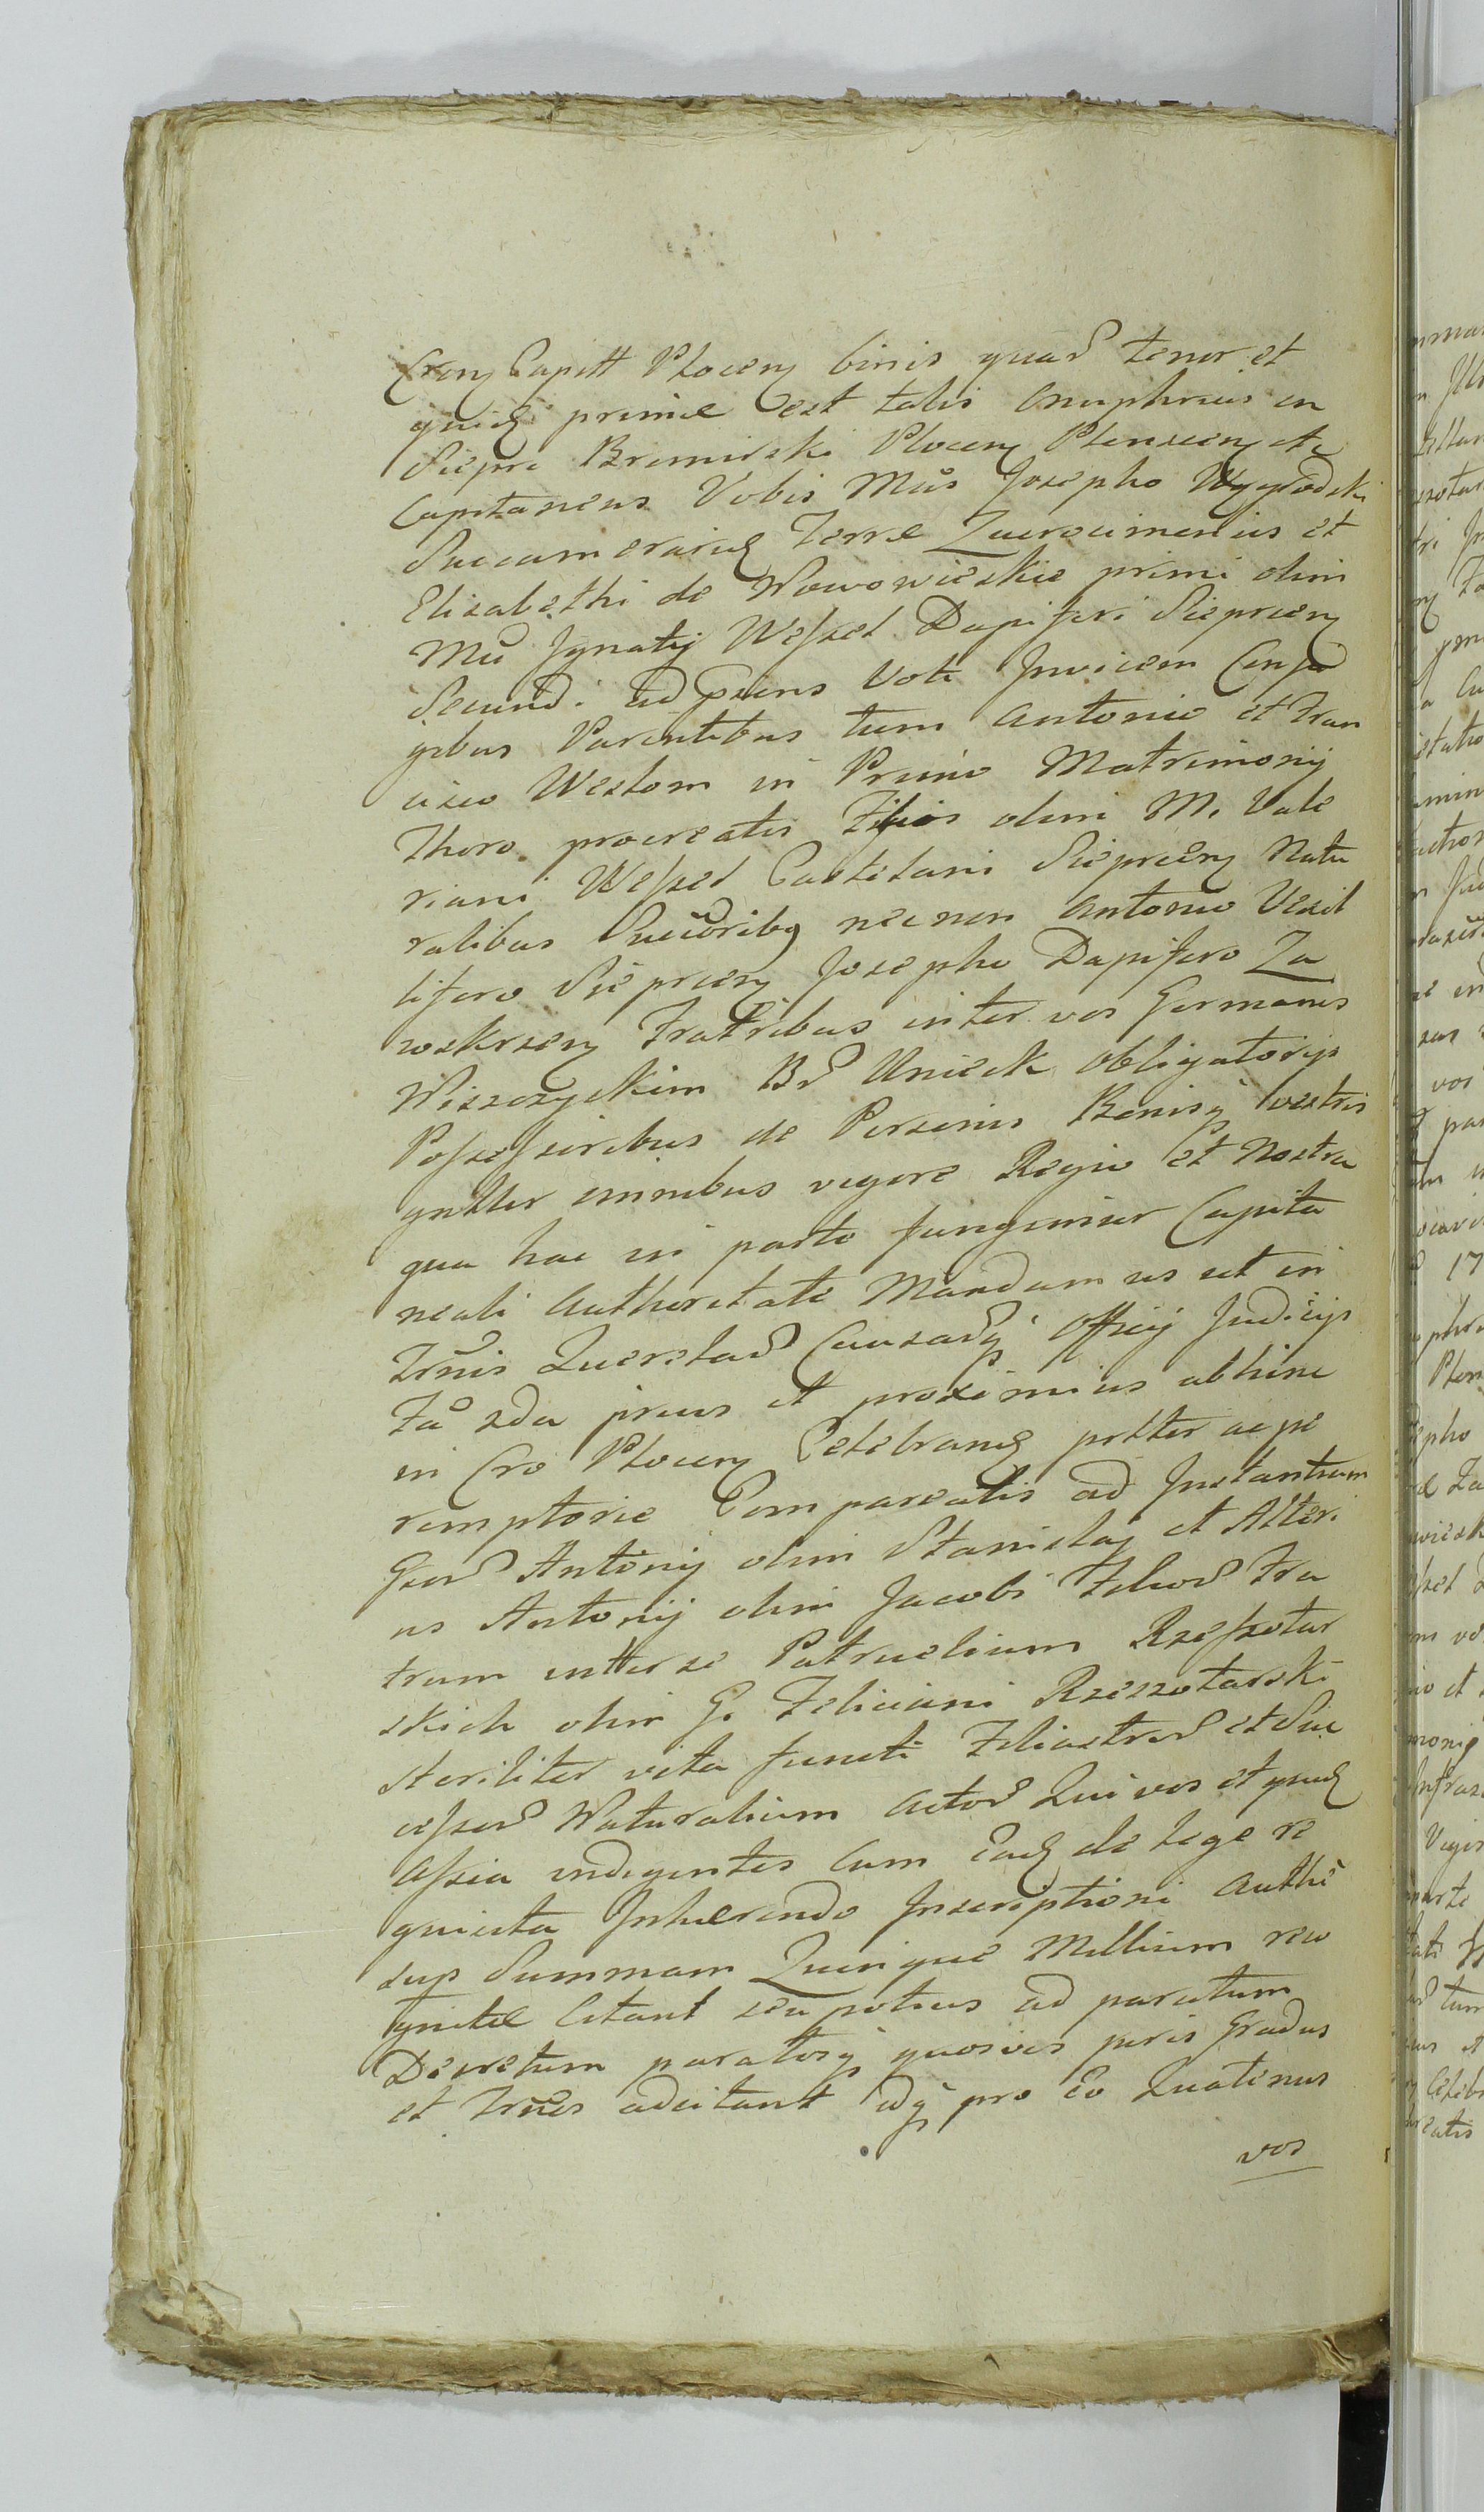 Cren Capitt Plocen binis quar tenor et
quidē primæ est talis Onuphrius in
Sieprc Bromirski Plocen Plonscen etc
Capitaneus Vobis Mcis Josepho Wygrodski
Succamerario Terræ Zacrocimensis et
Elisabethi de Wowowieskie primi olim
Mci Jgnatij Wessel Dapiferi Sieprcen
Secundi ad præns Voti Jnvicem Conju
gibus Parentibus tum Antonio et Fran
cisco Weslom in Primo Matrimonij
Thoro procreatis Filios olim M. Vale
riani Wessel Castelani Sieprcen Natu
ralibus Succoribq necnon Antonio Vexil
lifero Sieprcen Josepho Dapifero Za
wskrzen Fratribus inter vos Germanis
Wiszczyckim Br Unieck obligatorijs
Possessoribus de Personis Bonisq vestris
gnltter omnibus vigore Regia et Nostra
qua hac in parte fungimur Capita
neali Authoritate Mandamus ut in
Trnis Querelar Causarq Officij Judicijs
Fa sda prius et proximius abhinc
in Cro Plocen Celebrand peltter ac pe
remptorie Compareatis ad Jnstantiam
Gsor Antonij olim Stanislaj et Alteri
us Antonij olim Jacobi Filior Fra
trum intterse Patruelium Rzeszotar
skich olim G. Feliciani Rzeszotarski
steriliter vita functi Filiastror et Suc
cessor Naturalium Actor Qui vos et quid
Assia indigentes Cum Ead de lege re
quisita Jnhærendo Jnscriptioni Authē
sup Summam Quinque Millium reco
gnitæ Citant seu potius ad paratum
Decretum paratosq quosvis juris Gradus
et Trnos adcitant idq pro Eo Quatenus
vos